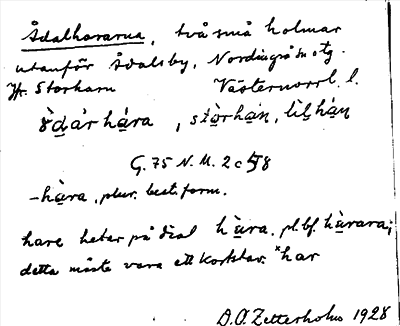 Ådalhararna, två små holmar
utanför Ådalsby, Nordingrå sn otg.
Jfr. Storharn Västernorrl. l.
stòrha̱n, lìḷha̱n
G. 75 N. M. 2 c 58
-hàra, plur. best. form.
hare heter på dial hàra. pl. bf. hàrara;
detta måste vara ett kortstav. *har
D.O. Zetterholm 1928